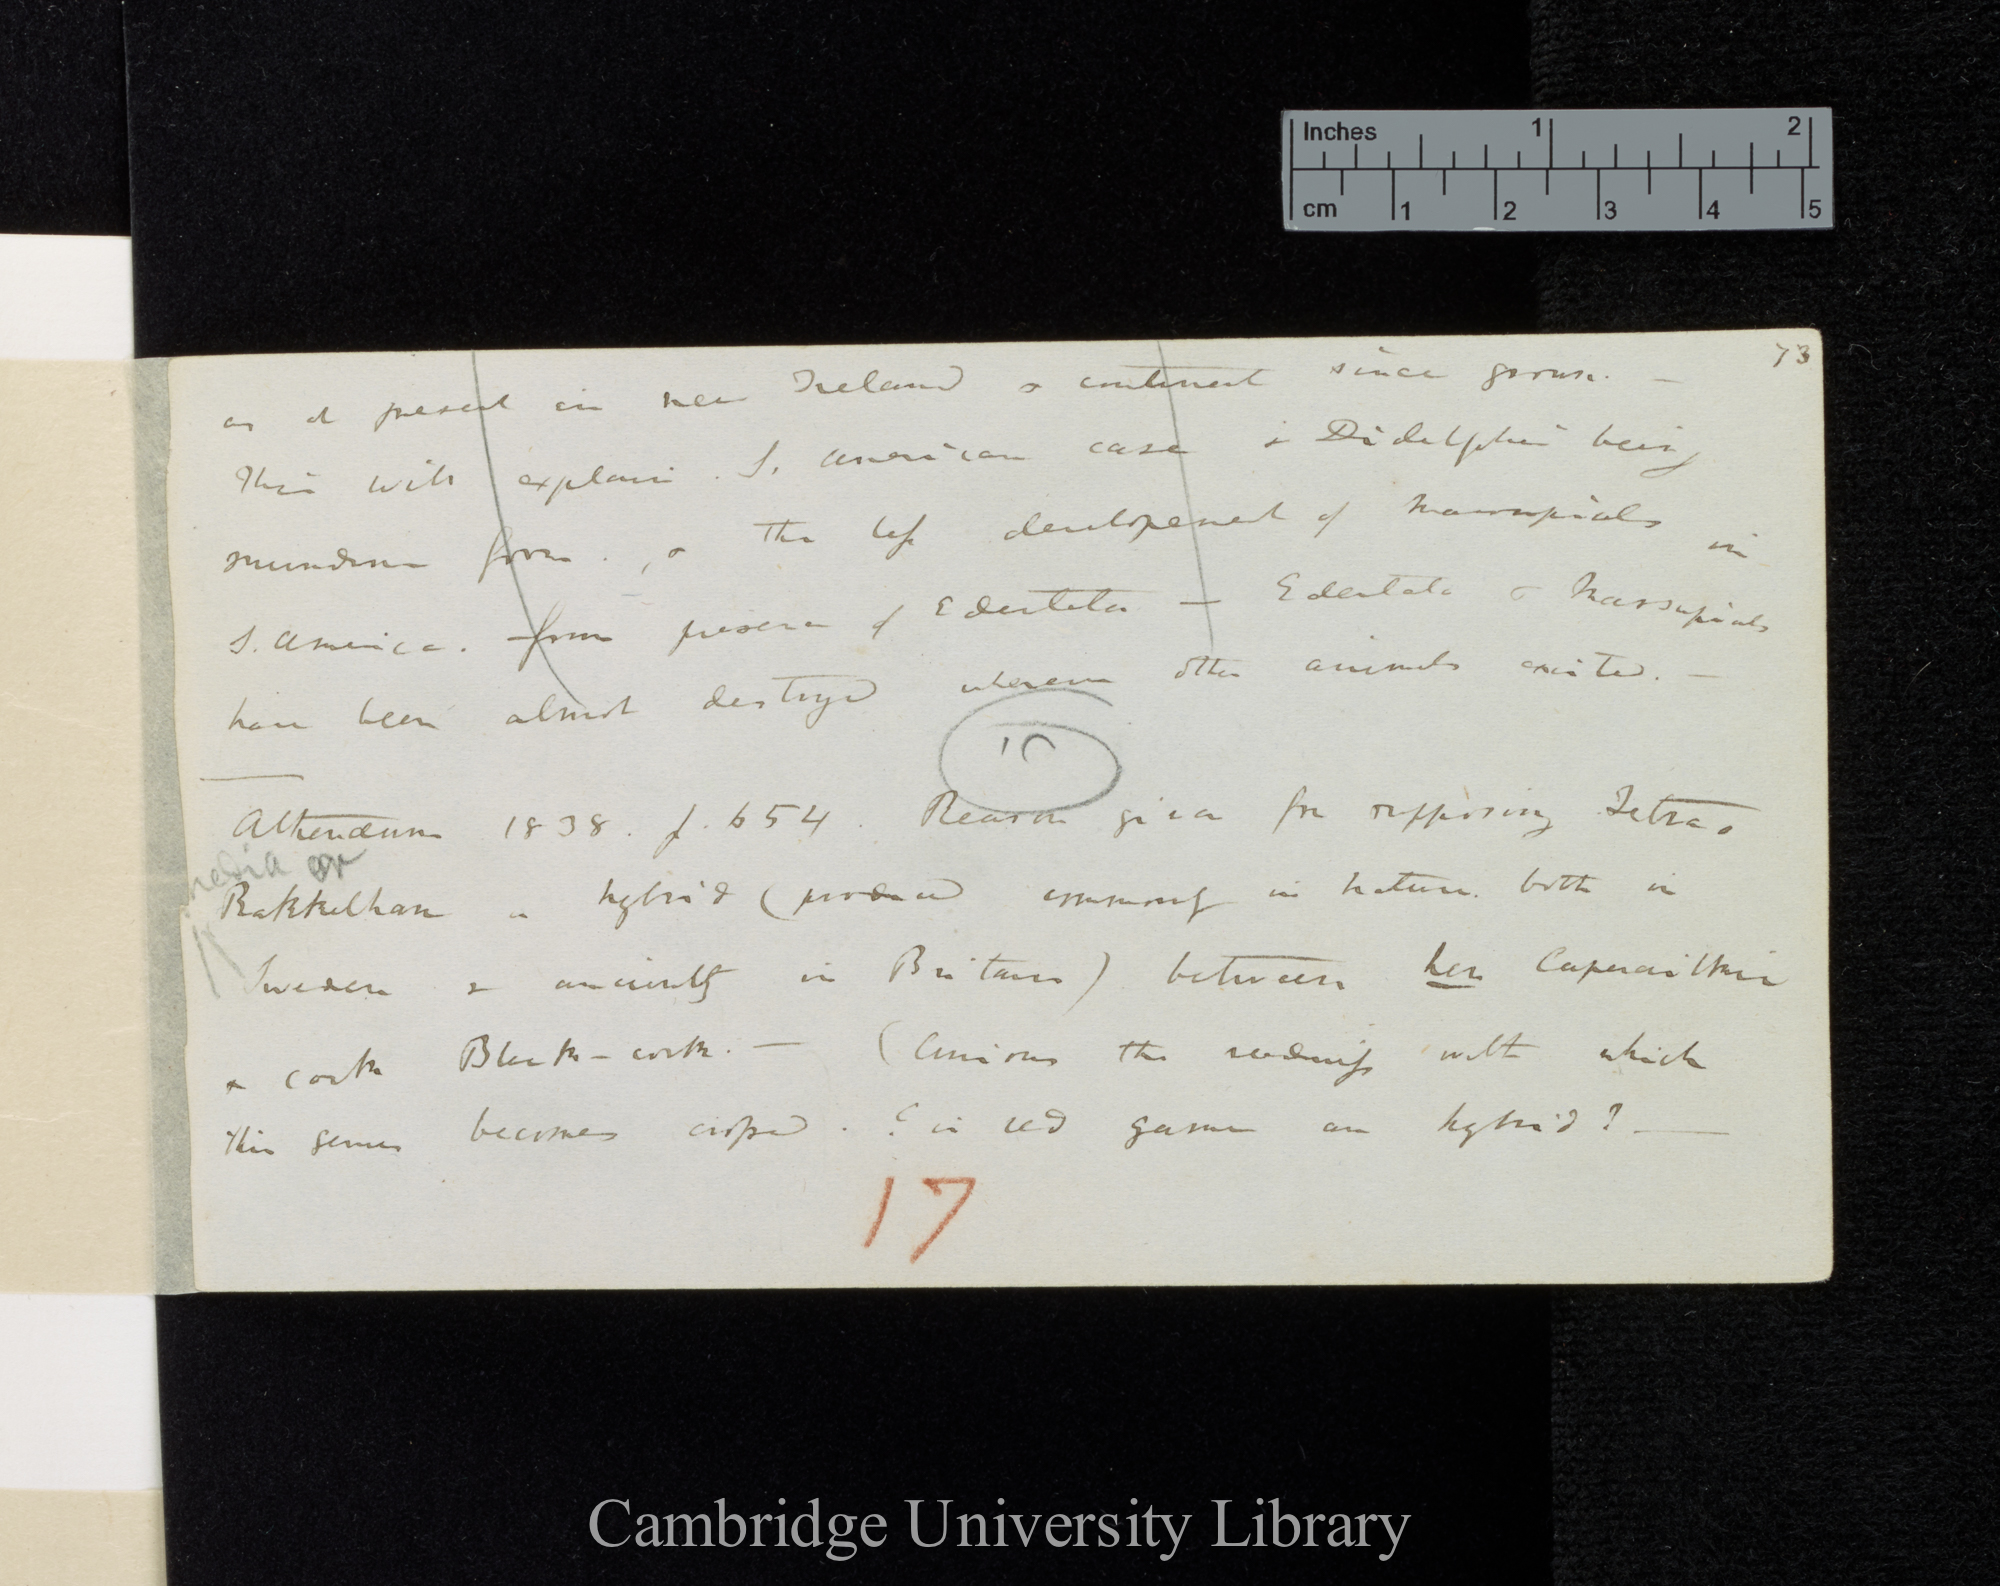 Inches 1 2
cm 1 2 3 4 5
73
as at present in new Ireland & continent since grown. —
This will explain S. American case & Didelphis being
mundine form., & the less developement of Marsupials in
S. America. from presence of Edentata — Edentata & Marsupials
have been almost destroyed wherever other animals existed. —
15
Athenæum 1838. p. 654. Reason given for supposing Tetrao
media or
Rakkelhan a hybrid (produced commonly in nature. both in
Sweden & anciently in Britain) between hen Capercailkie
& cock Black-cock. — (Curious the readiness with which
this genus becomes crossed. ? is red game an hybrid? —
17
Cambridge University Library